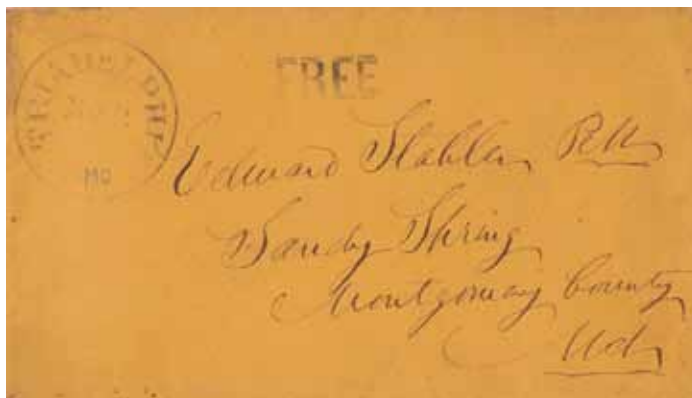 TRIADELPHIA
MD
FREE
Edward Stabler P.M.
Sandy Spring
Montgomery County
Md